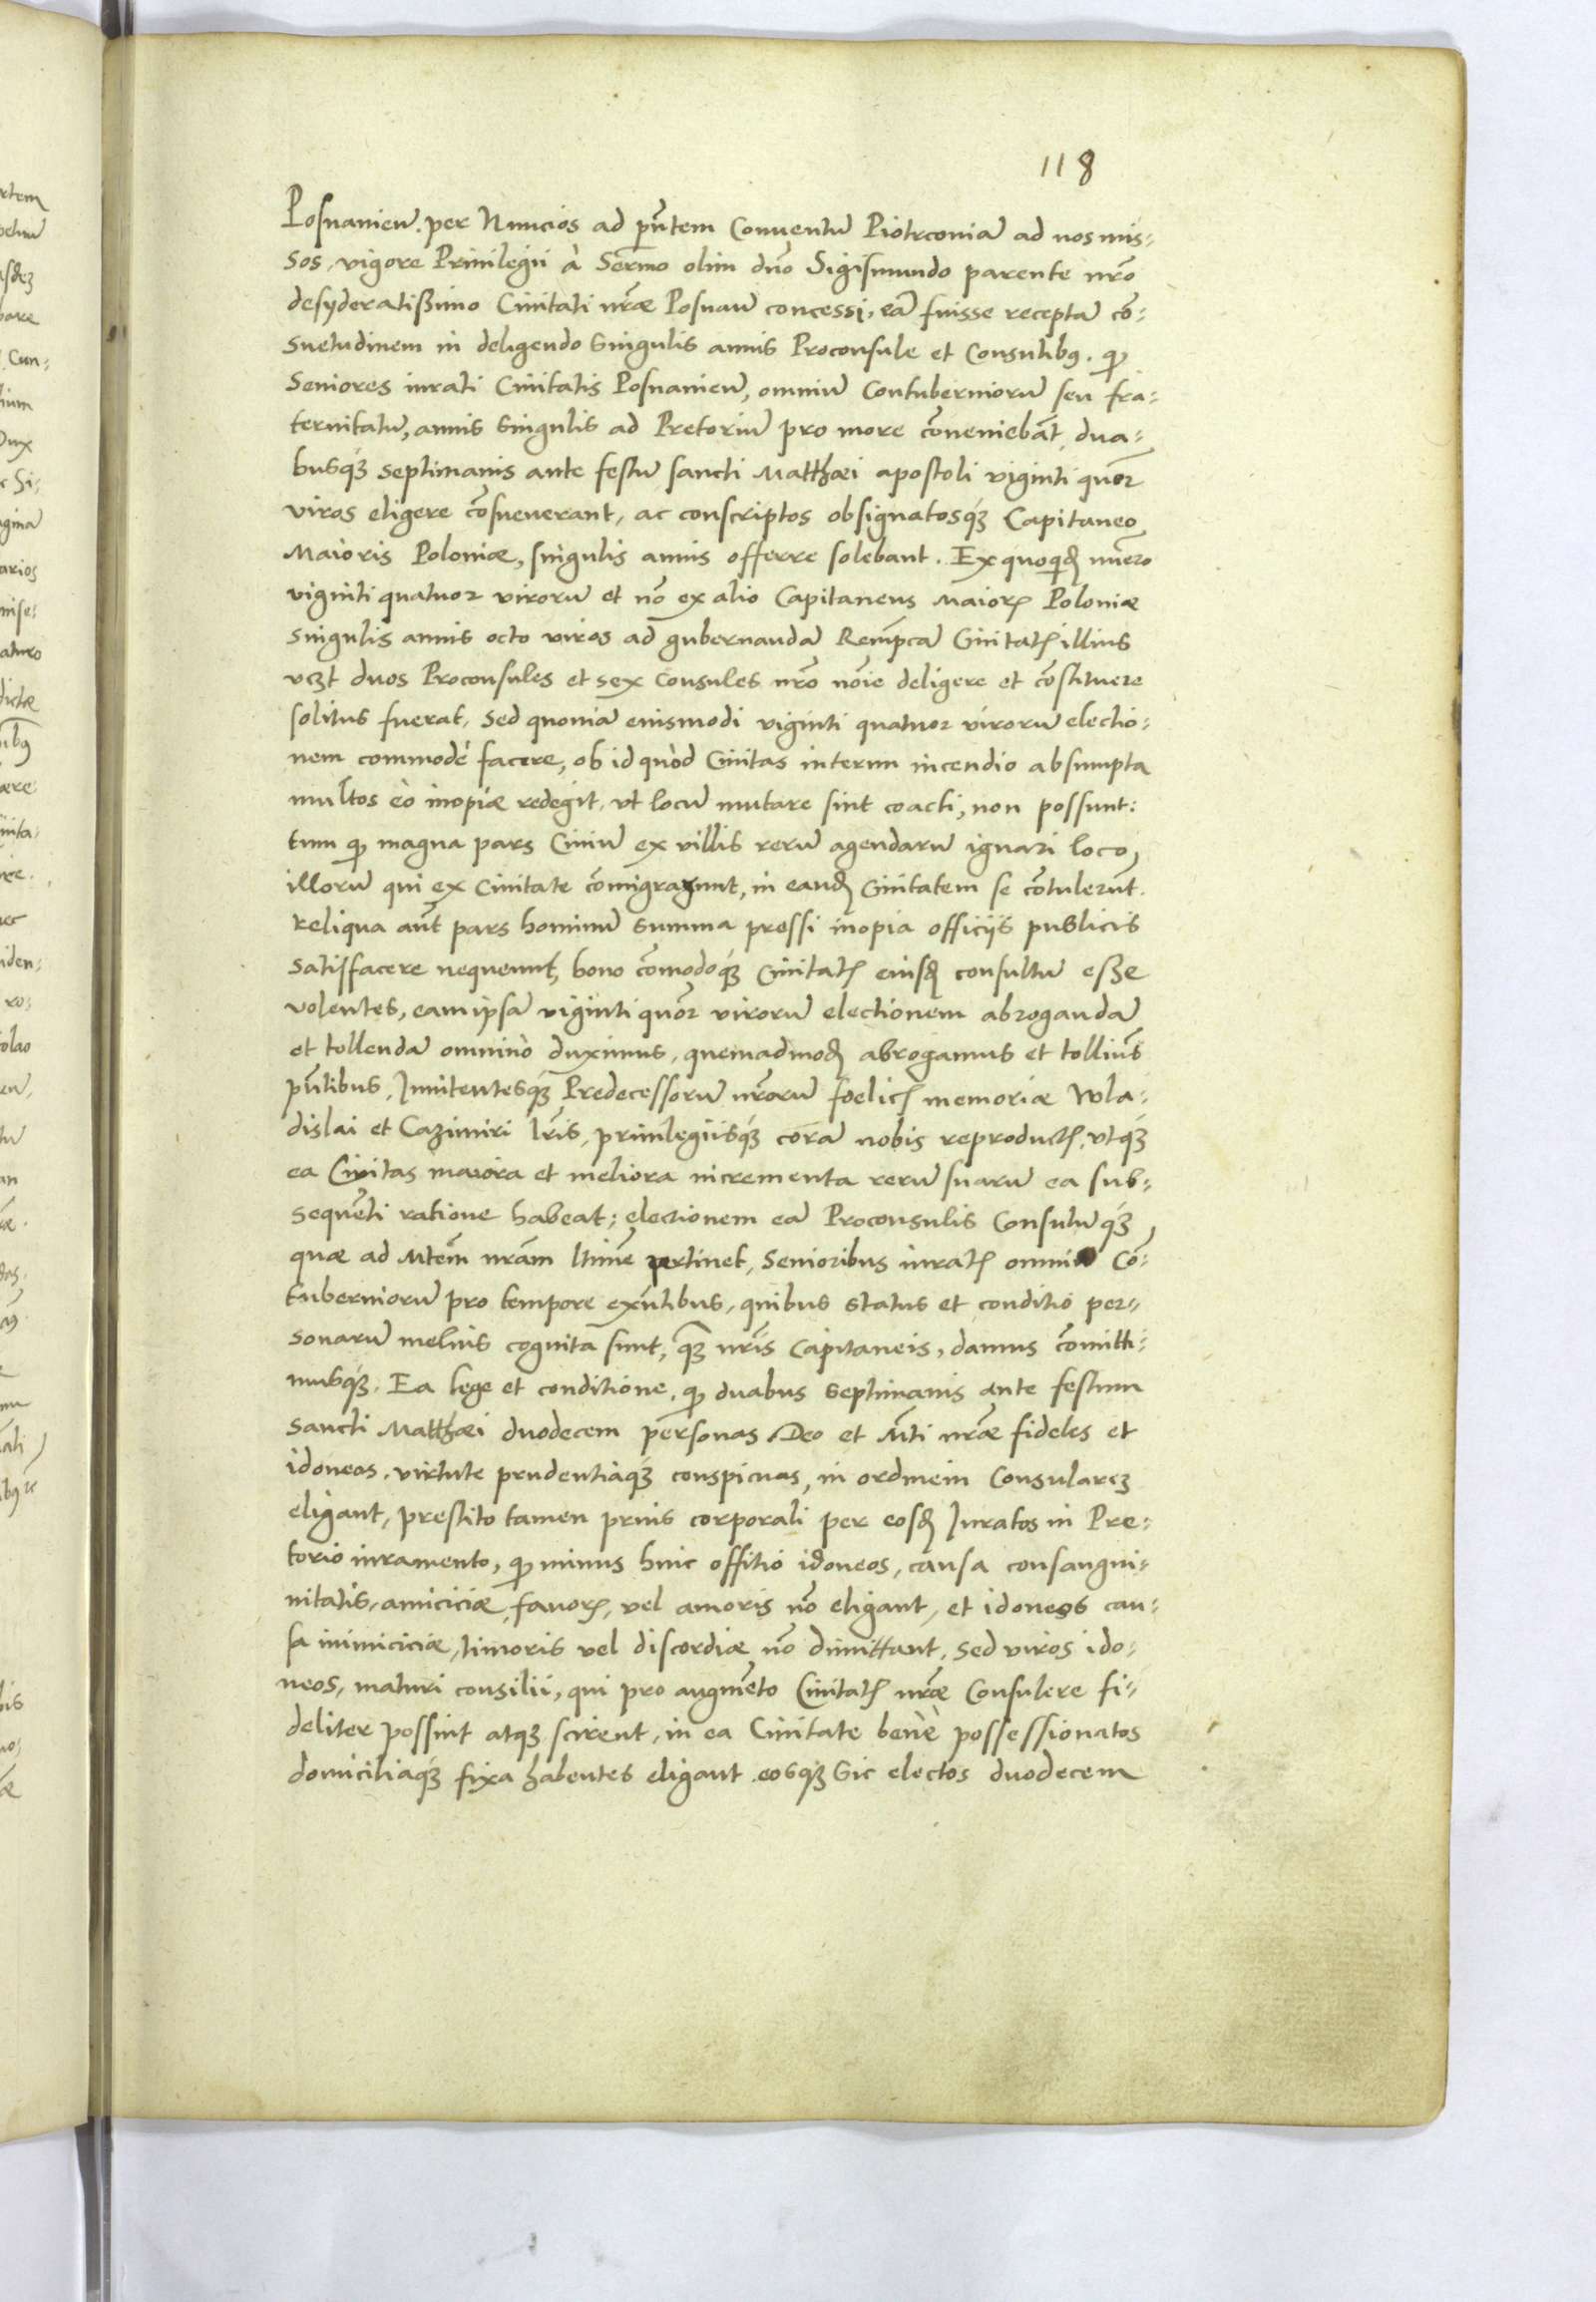 118
Posnanieñ. per Nuncios ad pñtem Conuentũ Piotrconiã ad nos mis-
sos, vigore Priuilegii à Sermo olim dño Sigismundo parente nr̃o
desyderatißimo Ciuitati nr̃æ Posnañ concessi, eã fuisse receptã cõ-
suetudinem in deligendo singulis annis Proconsule et Consulibꝰ. qꝫ
Seniores iurati Ciuitatis Posnanieñ, omniũ Contuberniorũ seu fra-
ternitatũ, annis singulis ad Pretoriũ pro more cõueniebãt, dua-
busqꝫ septimanis ante festũ sancti Matthæi apostoli viginti quõr
viros eligere cõsueuerant, ac conscriptos obsignatosqꝫ Capitaneo
Maioris Poloniæ, singulis annis offerre solebant. Ex quoqid̃ nũero
viginti quatuor virorũ et nõ ex alio Capitaneus Maior̃ Poloniæ
singulis annis octo viros ad gubernandã Remp̃cã Ciuitat̃ illius
vcꝫt duos Proconsules et sex Consules nr̃o noĩe deligere et cõstituere
solitus fuerat, sed quoniã eiusmodi viginti quatuor virorũ electio-
nem commodè facere, ob id quòd Ciuitas interim incendio absumpta
multos eò inopiæ redegit, vt locũ mutare sint coacti, non possunt:
tum qꝫ magna pars Ciuiũ ex villis rerũ agendarũ ignari loco
illorũ qui ex Ciuitate cõmigrarunt, in eand̃ Ciuitatem se cõtulerũt.
reliqua aũt pars hominũ summa pressi inopia officijs publicis
satisfacere nequeunt, bono cõmodoqꝫ Ciuitat̃ eiusd̃ consultũ eße
volentes, eam ipsã viginti quõr virorũ electionem abrogandã
et tollendã omnino duximus, quemadmod̃ abrogamus et tollim̃s
pñtibus, Innitentesqꝫ Predecessorũ nr̃orum foelic̃ memoriæ Wla-
dislai et Cazimiri lr̃is, priuilegiisqꝫ corã nobis reproduct̃, vtqꝫ
ea Ciuitas maiora et meliora incrementa rerũ suarũ ea sub-
sequẽti ratione habeat; electionem eã Proconsulis Consulũqꝫ
quæ ad Mtem nr̃am ltĩme pertinet, Senioribus iurat̃ omniũ Cõ-
tuberniorũ pro tempore exñtibus, quibus status et conditio per-
sonarũ melius cognita sunt, qꝫ nr̃is Capitaneis, damus cõmitti-
musqꝫ. Ea lege et conditione, qꝫ duabus septimanis ante festum
Sancti Matthæi duodecem personas Deo et Mti nr̃æ fideles et
idoneos, virtute prudentiaqꝫ conspicuas, in ordinem Consularem
eligant, prestito tamen prius corporali per eosd̃ Iuratos in Pre-
torio iuramento, qꝫ minus huic offitio idoneos, causa consangui-
nitatis, amiciciæ, fauor̃, vel amoris nõ eligant, et idoneos cau-
sa inimiciciæ, timoris vel discordiæ nõ dimittant, sed viros ido-
neos, maturi consilii, qui pro augmẽto Ciuitat̃ nr̃æ Consulere fi-
deliter possint atqꝫ scirent, in ea Ciuitate benè possessionatos
domiciliaqꝫ fixa habentes eligant, eosqꝫ sic electos duodecem